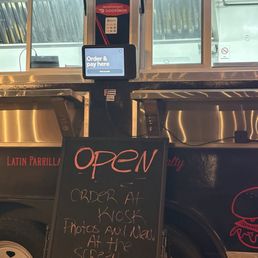 DOORDASH
Order &
pay here
LATIN PARRILLA
OPEN
ORDER AT
KIOSK
PHOTOS AND MENU
AT THE
SCREEN